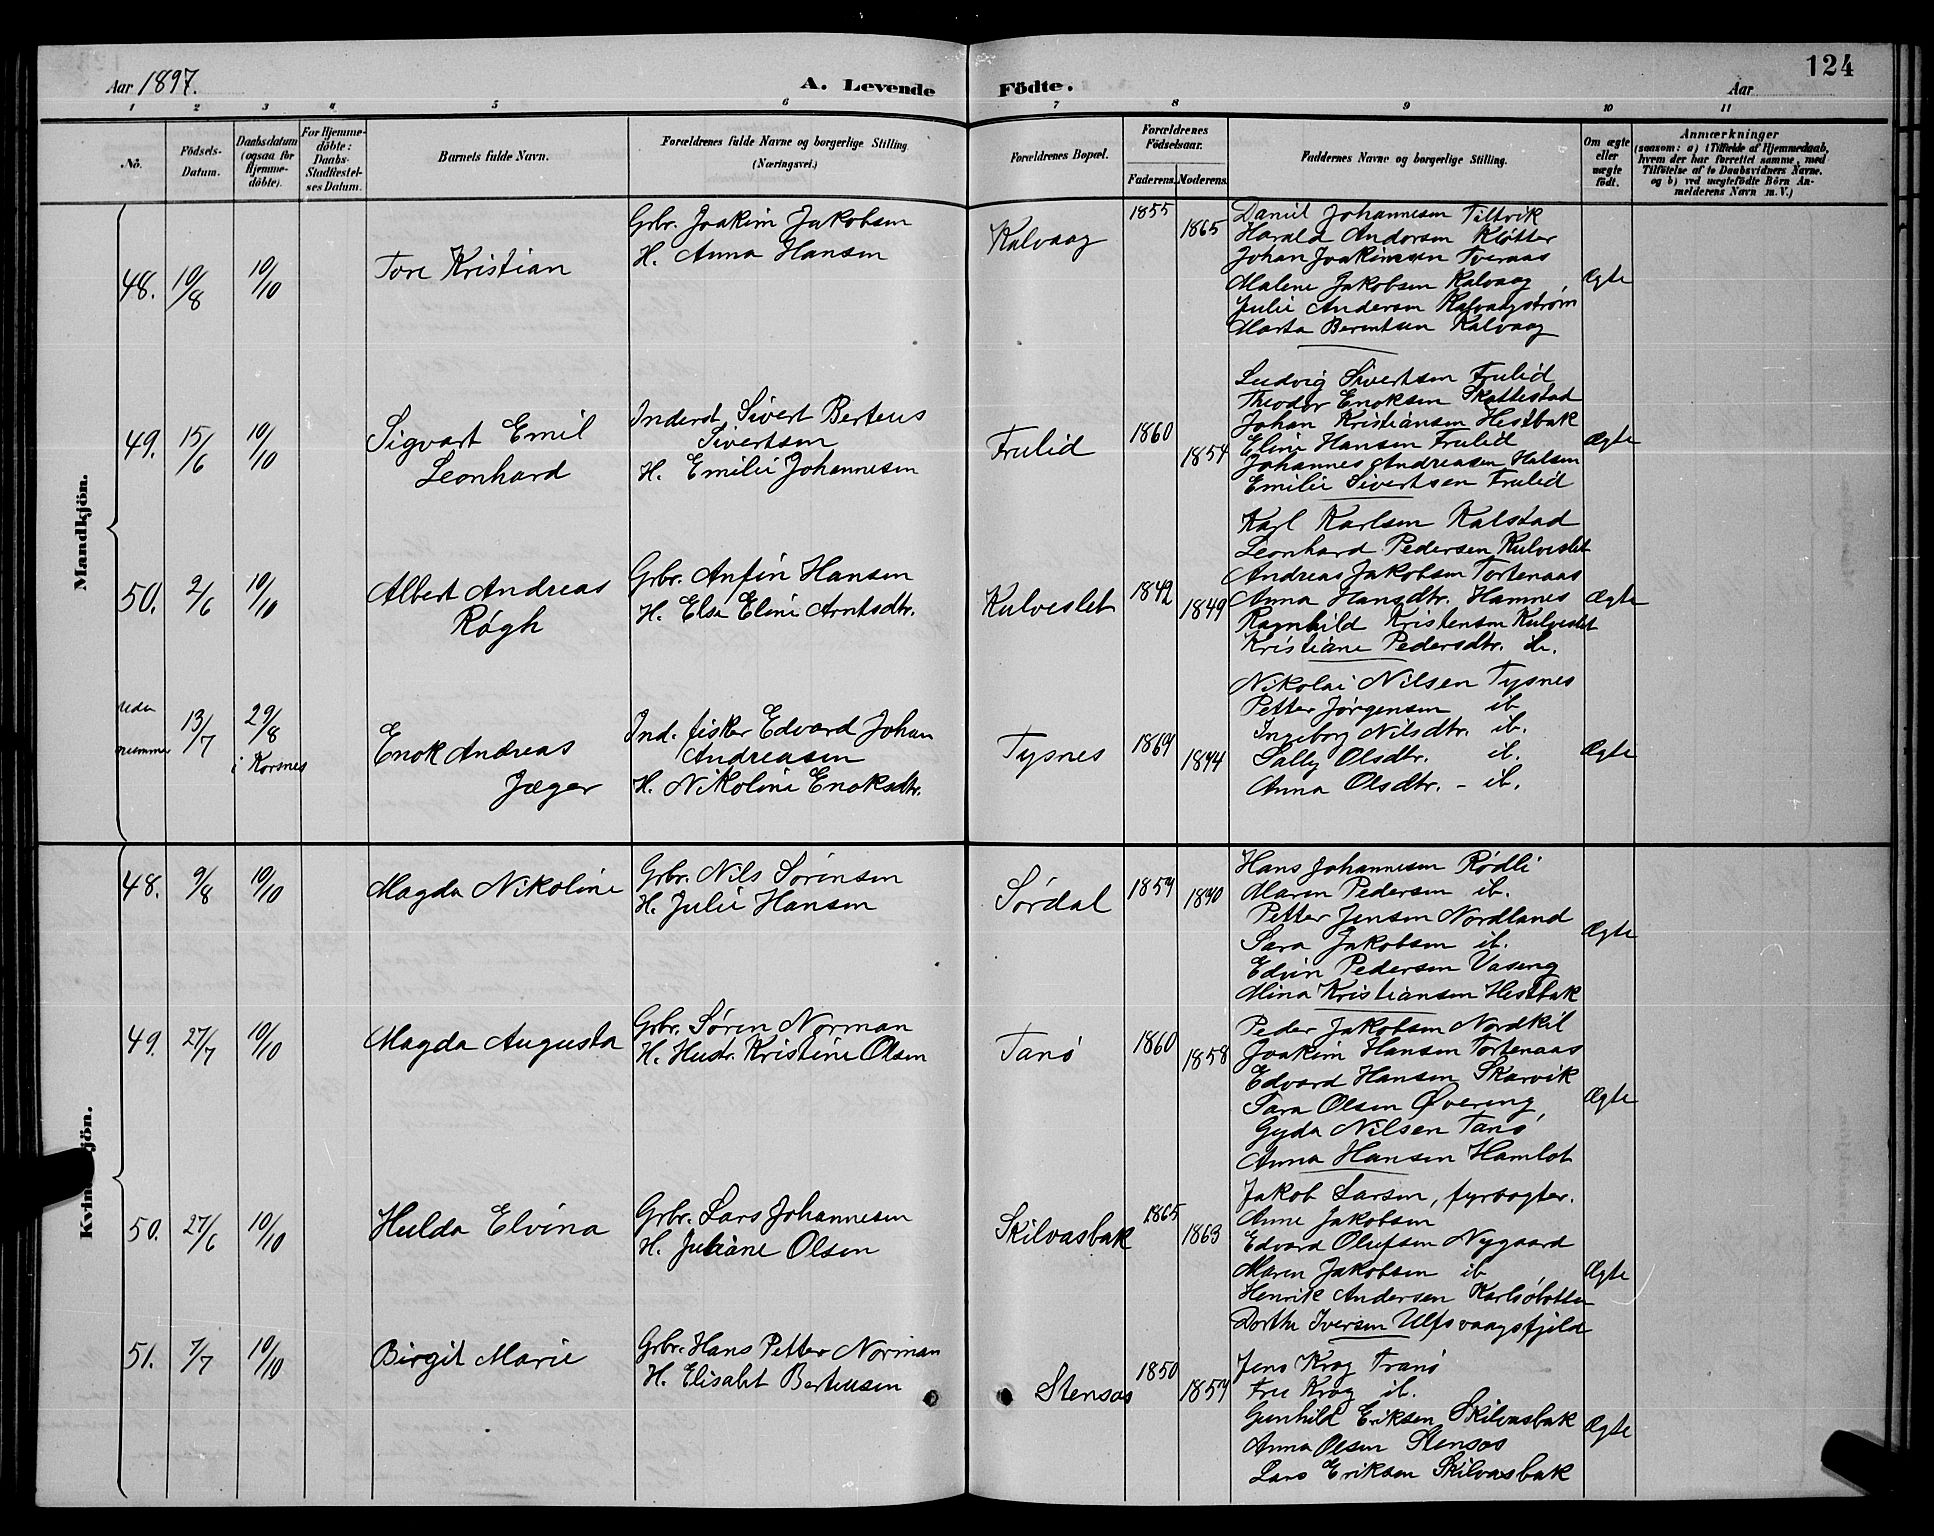 124
Aar 1897.
A. Levende Födte.
Aar
1 2 3 4 5 6 7 8 9 10 11
No.
Födsels-Datum.
Daabsdatum (ogsaa for Hjemme-döbte).
For Hjemme-döbte: Daabs-Stadfestel-ses Datum.
Barnets fulde Navn.
Forældrenes fulde Navne og borgerlige Stilling (Næringsvei.)
Forældrenes Bopæl.
Forældrenes Födselsaar.
Faderens.
Moderens.
Faddernes Navne og borgerlige Stilling.
Om ægte eller uægte födt.
Anmærkninger
(saasom: a) i Tilfælde af Hjemmedaab, hvem der har forrettet samme, med Tilföielse af to Daabsvidners Navne. og b) ved uægtefödte Börn An-melderens Navn m. V.)
Mandkjön.
48. 10/8 10/10
Tore Kristian
Grbr. Joakim Jakobsen
H. Anna Hansen
Kalvaag
1855
1865
Daniel Johannesen Tiltvik
Harald Andorsen Kløtter
Johan Joakimsen Tveraas
Malene Jakobsen Kalvaag
Julie Andersen Kalvaagstrøm
Marta Berentsen Kalvaag
Ægte
49. 15/6 10/10
Sigvart Emil
Leonhard
Inderst Sivert Berteus
Sivertsen
H. Emilie Johannesen
Frulid
1860
1854
Ludvig Sivertsen Frulid
Theodor Enoksen Skattestad
Johan Kristiansen Hestbak
Eline Hansen Frulid
Johannes Andreasen Halsen
Emilie Sivertsen Frulid
Ægte
50. 2/6 10/10
Albert Andreas
Røgh
Grbr. Anfin Hansen
H. Else Eline Arntsdtr.
Kulveslet
1842
1849
Karl Karlsen Kalstad
Leonhard Pedersen Kulveslet
Andreas Jakobsen Tortenaas
Anna Hansdtr. Hamnes
Ragnhild Kristensen Kulveslet
Kristiane Pedersdtr. ib.
Ægte
uden
nummer
13/7 29/8
i Korsnes
Enok Andreas
Jæger
Ind. fisker Edvard Johan
Andreasen
H. Nikoline Enoksdtr.
Tysnes
1869
1874
Nikolai Nilsen Tysnes
Petter Jørgensen ib
Ingeborg Nilsdtr. ib.
Sally Olsdtr. ib.
Anna Olsdtr. - ib.
Ægte
Kvin jön.
48. 9/8 10/10
Magda Nikoline
Grbr. Nils Sørensen
H. Julie Hansen
Sørdal
1857
1870
Hans Johannesen Rødli
Maren Pedersen ib.
Petter Jensen Nordland
Sara Jakobsen ib.
Edvin Pedersen Vaseng
Mina Kristiansen Hestbak
Ægte
49. 27/7 10/10
Magda Augusta
Grbr. Søren Norman
H. Hustr. Kristine Olsen
Tanø
1860
1858
Peder Jakobsen Nordkil
Joakim Hansen Tortenaas
Edvard Hansen Skarvik
Sara Olsen Øvereng
Gyda Nilsen Tanø
Anna Hansen Hamlot
Ægte
50. 27/6 10/10
Hulda Elvina
Grbr. Lars Johannesen
H. Juliane Olsen
Skilvasbak
1865
1863
Jakob Larsen, fyrvogter.
Anne Jakobsen
Edvard Olufsen Nygaard
Maren Jakobsen ib
Henrik Andersen Karlsöbotten
Dorthe Iversen Ulfsvaagsfjeld
Ægte
51. 7/7 10/10
Birgit Marie
Grbr. Hans Petter Norman
H. Elisabet Berteusen
Stensos
1850
1857
Jens Krog Tranø
Fru Krog ib.
Gunhild Eriksen Skilvasbak
Anna Olsen Stensos
Lars Eriksen Skilvasbak
Ægte